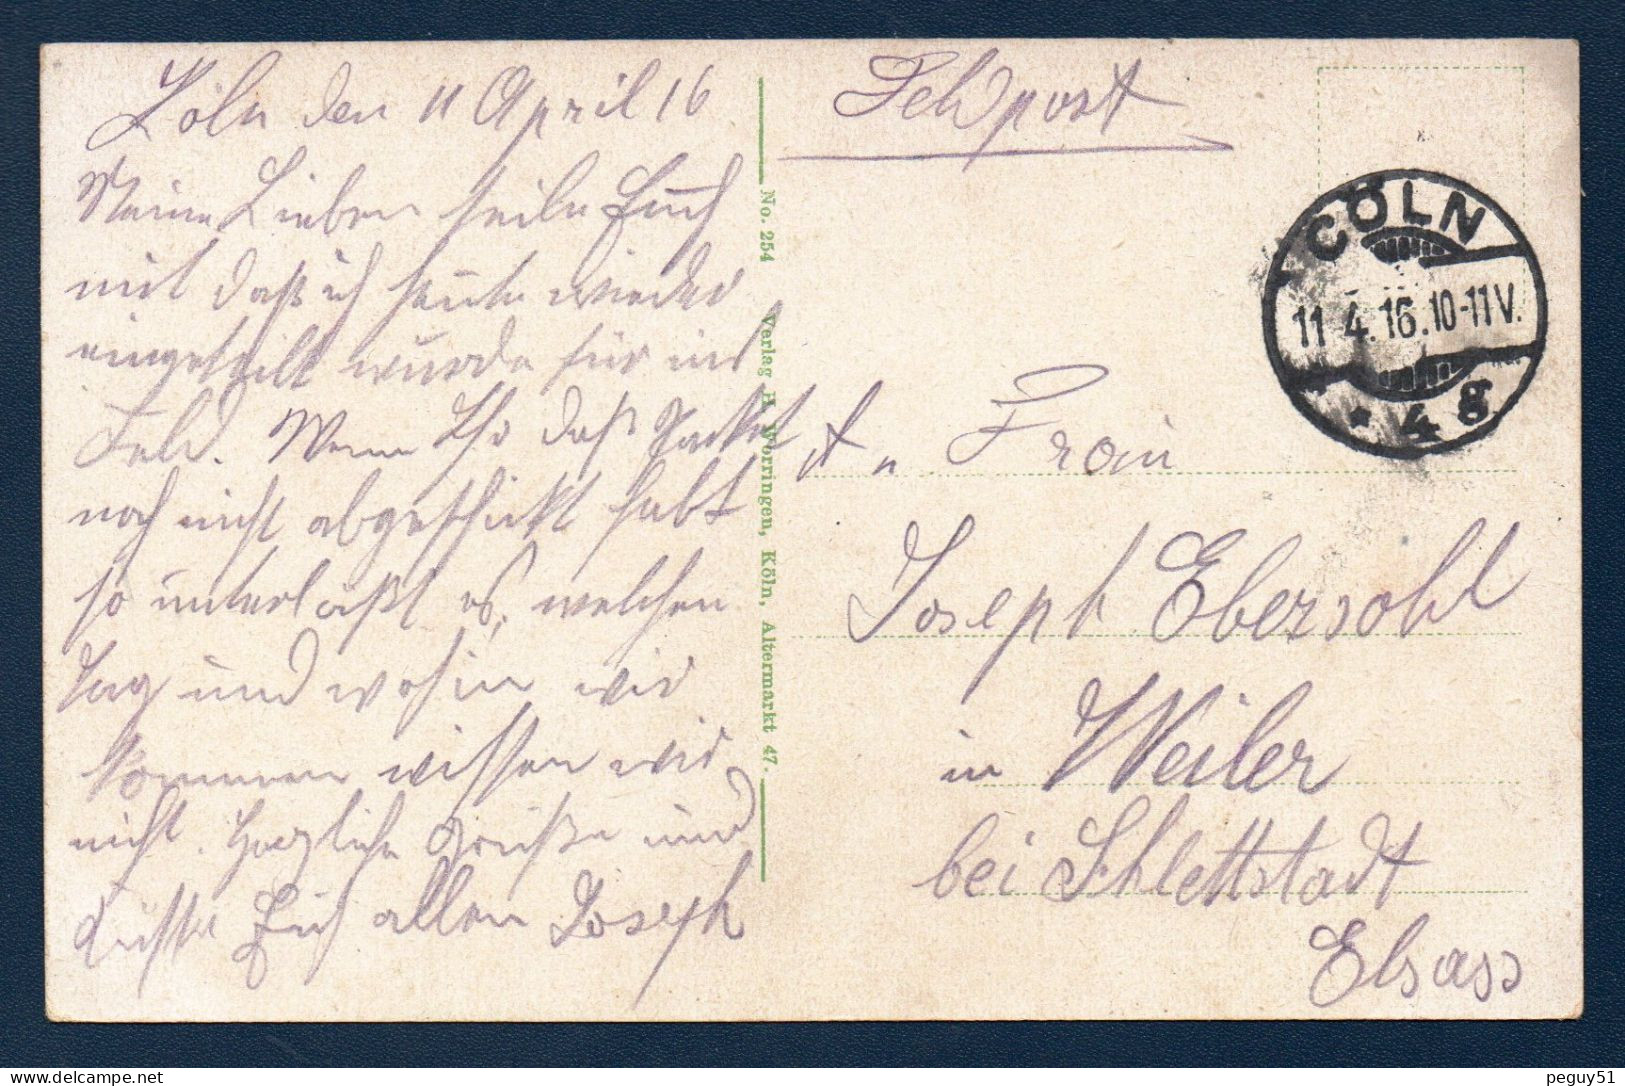 Köln den 11 April 16
Meine Lieben teile Euch
mit daß ich heute wieder
eingeteilt wurde für ins
Feld. Wenn Ihr daß Packet
noch nicht abgeschickt habt
so unterlaßt es, welchen
Tag und wohin wir
kommen wissen wir
nicht. Herzliche Grüße und
Küsse Euch allen Joseph
No. 254 Verlag H. Worringen, Köln, Altermarkt 47.
Feldpost
CÖLN
11.4.16.10-11V.
* 4 g
An Frau
Joseph Ebersohl
in Weiler
bei Schlettstadt
Elsass
peguy51
delcampe.net